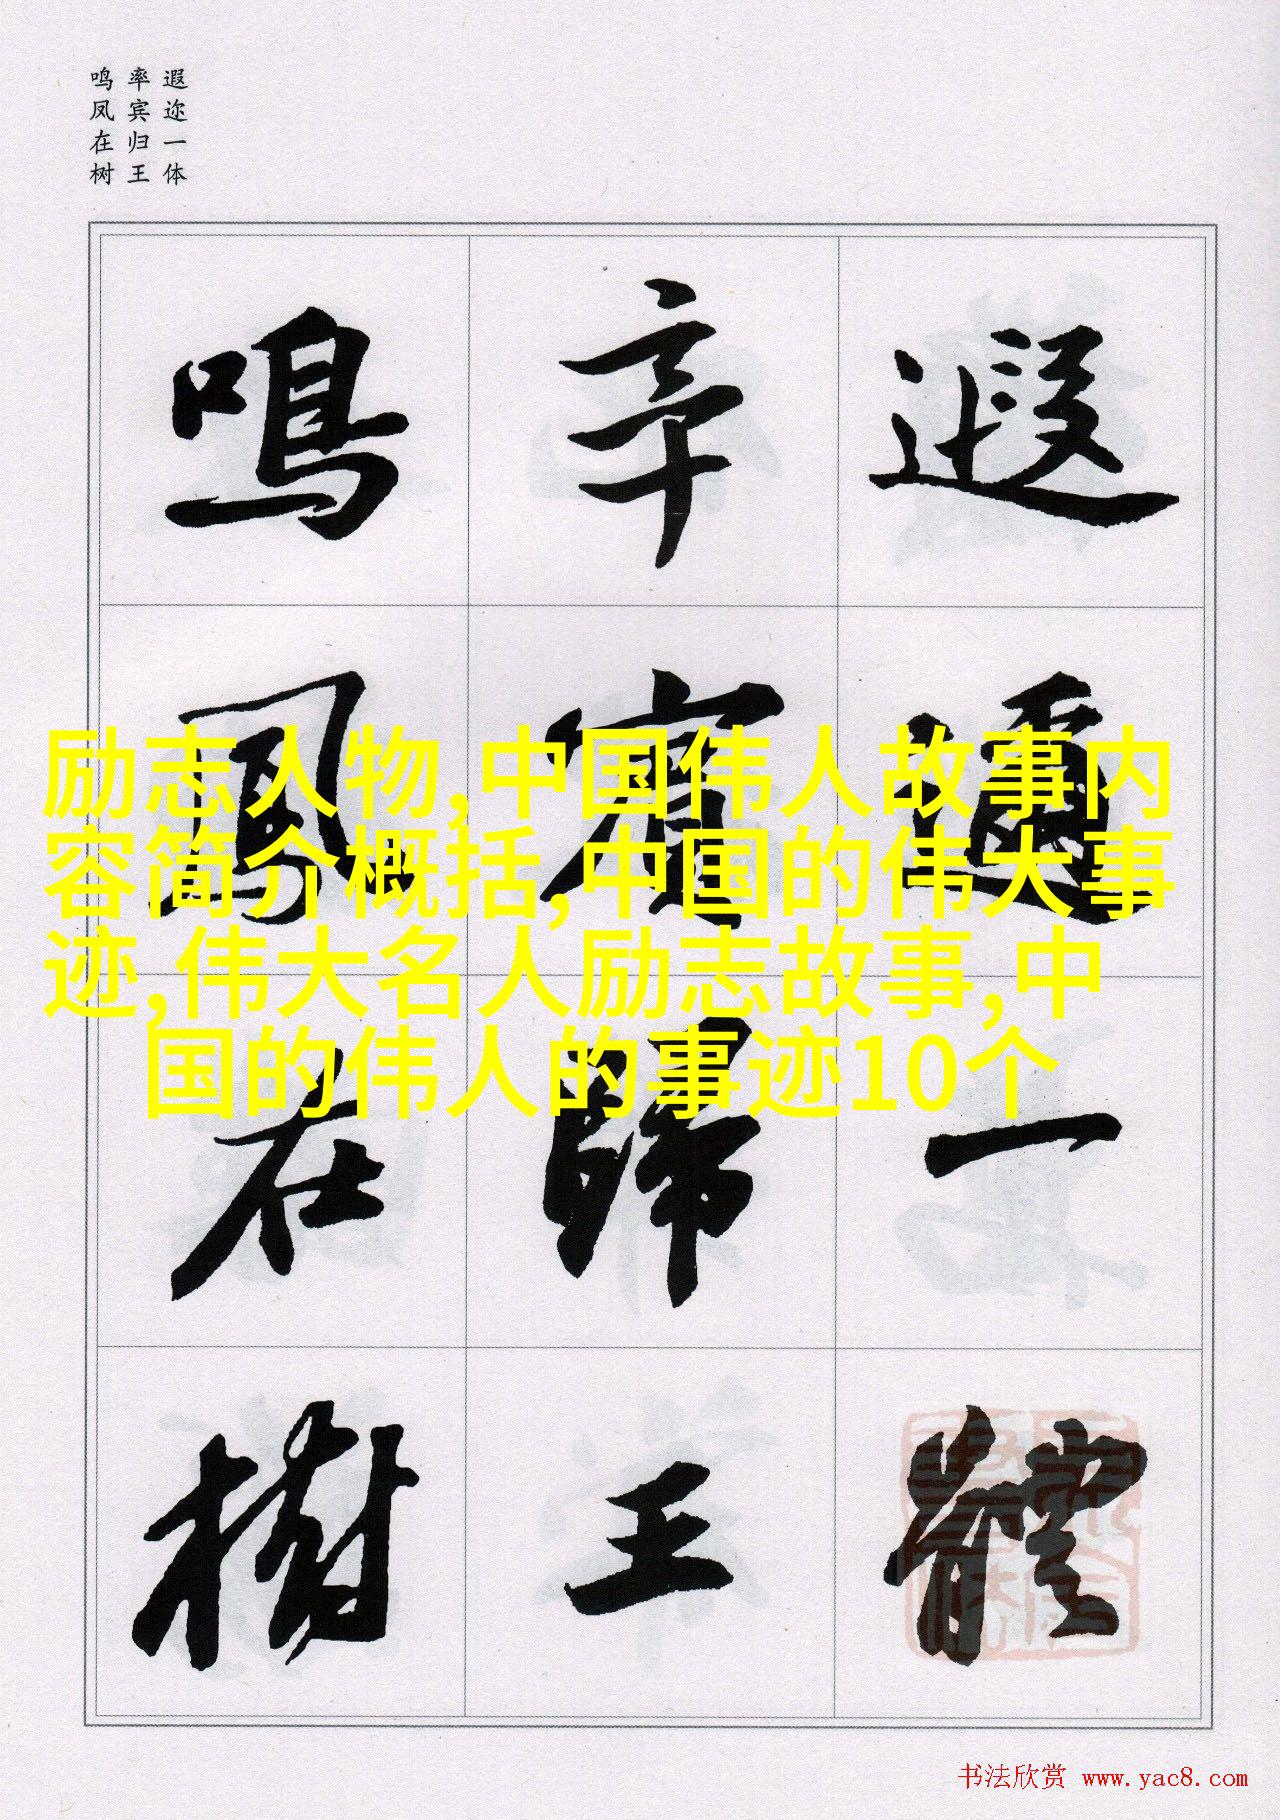 遐迩一体
率宾归王
鸣凤在树
遐邇一體
率賓歸王
鳴鳳在樹
励志人物,中国伟人故事内
容简介概括,中国的伟大事
迹,伟大名人励志故事,中
国的伟人的事迹10个
书法欣赏 www.yac8.com